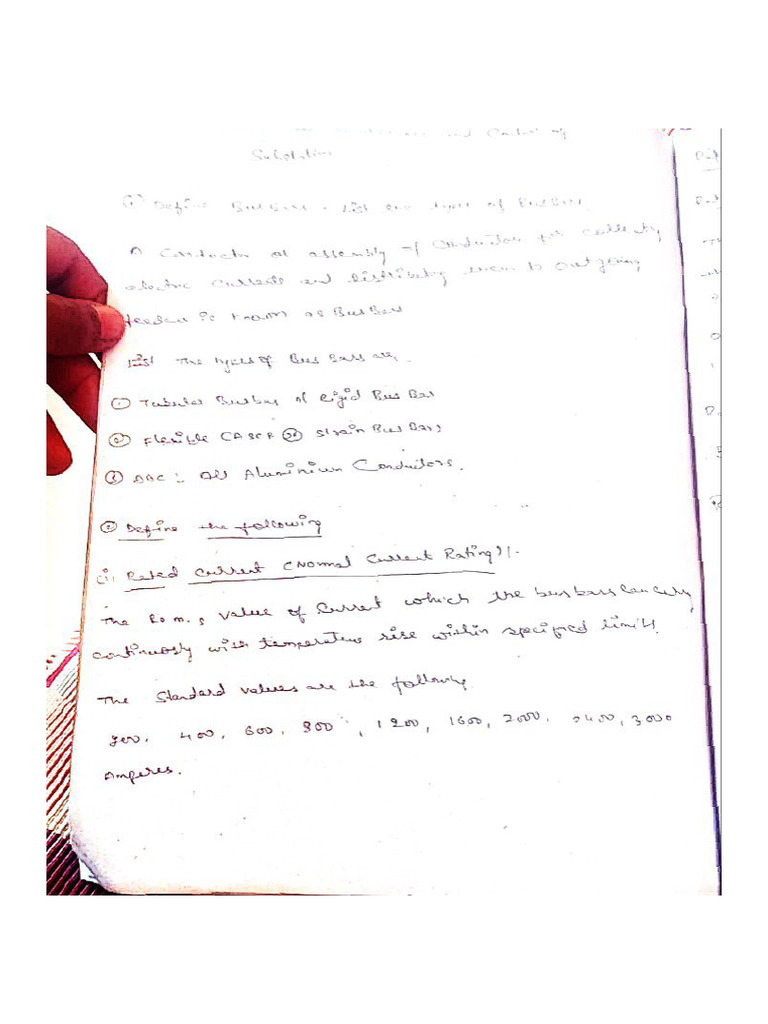 and
Substation
① Define BusBars. List out types of BusBars.
A Conductor or assembly of Conductor for collecting
electric currents and distributing them to outgoing
feeder is known as BusBars
List The types of Bus bars are.
① Tubular Busbars or Rigid Bus Bar
② Flexible CASCR or Strain Bus Bars
③ AAC :- All Aluminium Conductors.
② Define the following
(i) Rated Current (Normal Current Rating) :-
The R.m.s value of Current which the bus bars can carry
continuously with temperature rise within specified limits.
The Standard values are the following
400, 600, 800, 1200, 1600, 2000, 2400, 3000
Amperes.